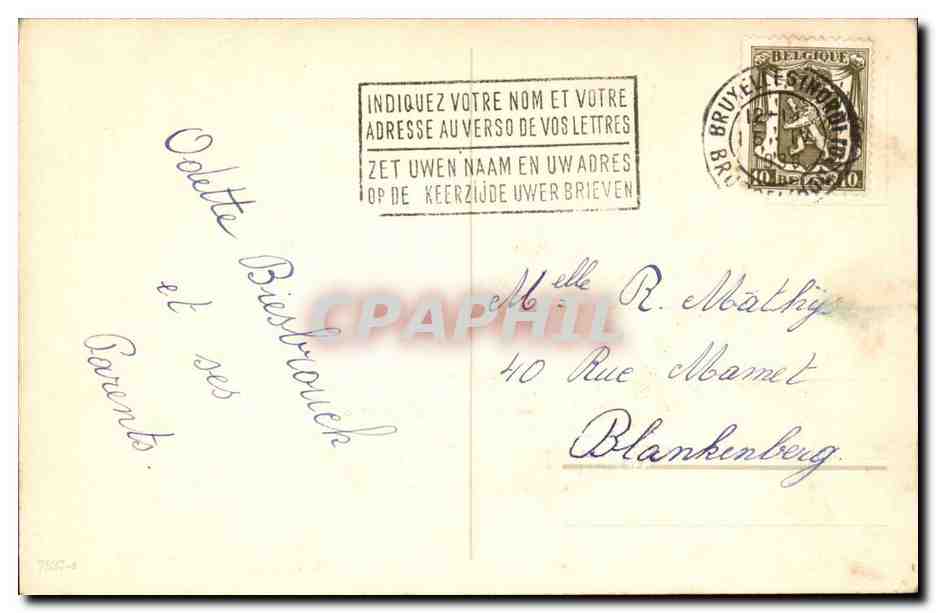 INDIQUEZ VOTRE NOM ET VOTRE
ADRESSE AU VERSO DE VOS LETTRES
ZET UWEN NAAM EN UW ADRES
OP DE KEERZIJDE UWER BRIEVEN
BELGIQUE
10 BELGIE 10
BRUXELLES (NORD)
Odette Biesbrouck
et ses
Parents.
CPAPHIL
Melle R. Mathÿs
40 Rue Mamet
Blankenberg.